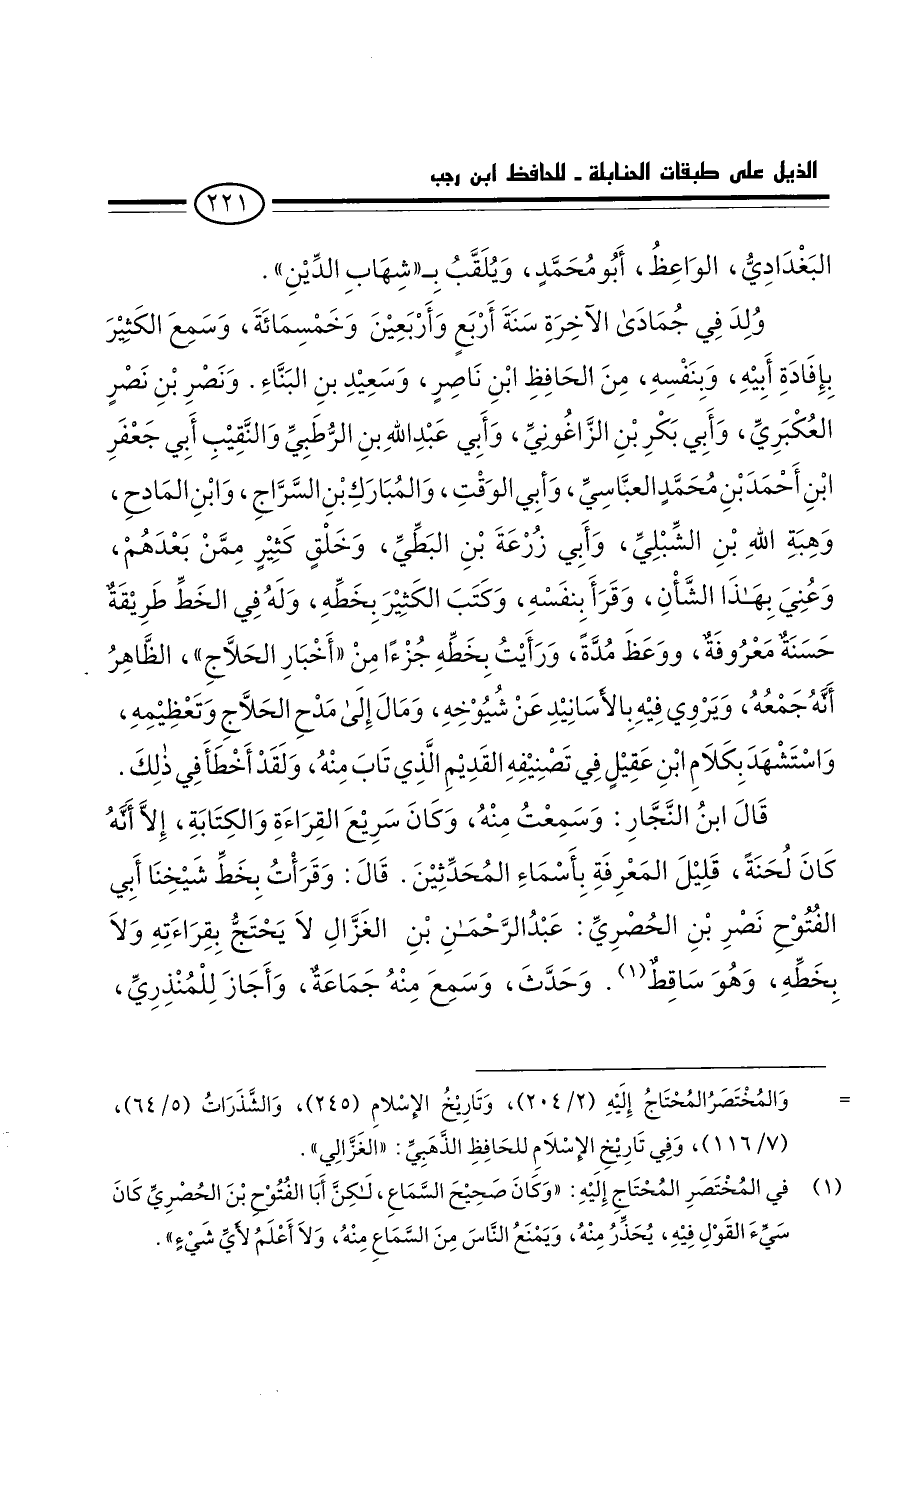 الذيل على طبقات الحنابلة ـ للحافظ ابن رجب
٢٢١
البَغْدَادِيُّ، الوَاعِظُ، أَبُو مُحَمَّدٍ، وَيُلَقَّبُ بِـ«شِهَابِ الدِّيْنِ».
وُلِدَ فِي جُمَادَىٰ الآخِرَةِ سَنَةَ أَرْبَعٍ وَأَرْبَعِيْنَ وَخَمْسِمَائَةَ، وَسَمِعَ الكَثِيْرَ
بِإِفَادَةِ أَبِيْهِ، وَبِنَفْسِهِ، مِنَ الحَافِظِ ابْنِ نَاصِرٍ، وَسَعِيْدِ بنِ البَنَّاءِ. وَنَصْرِ بْنِ نَصْرٍ
العُكْبَرِيِّ، وَأَبِي بَكْرِ بْنِ الزَّاغُونِيِّ، وَأَبِي عَبْدِاللهِ بنِ الرُّطَبِيِّ وَالنَّقِيْبِ أَبِي جَعْفَرِ
ابْنِ أَحْمَدَ بْنِ مُحَمَّدٍ العبَّاسِيِّ، وَأَبِي الوَقْتِ، وَالمُبَارَكِ بْنِ السَّرَّاجِ، وَابْنِ المَادِحِ،
وَهِبَةِ اللهِ بْنِ الشِّبْلِيِّ، وَأَبِي زُرْعَةَ بْنِ البَطِّيِّ، وَخَلْقٍ كَثِيْرٍ مِمَّنْ بَعْدَهُمْ،
وَعُنِيَ بِهَـٰذَا الشَّأْنِ، وَقَرَأَ بِنَفْسِهِ، وَكَتَبَ الكَثِيْرَ بِخَطِّهِ، وَلَهُ فِي الخَطِّ طَرِيْقَةٌ
حَسَنَةٌ مَعْرُوفَةٌ، ووَعَظَ مُدَّةً، وَرَأَيْتُ بِخَطِّهِ جُزْءًا مِنْ «أَخْبَارِ الحَلَّاجِ»، الظَّاهِرُ
أَنَّهُ جَمْعُهُ، وَيَرْوِي فِيْهِ بِالأَسَانِيْدِ عَنْ شُيُوْخِهِ، وَمَالَ إِلَىٰ مَدْحِ الحَلَّاجِ وَتَعْظِيْمِهِ،
وَاسْتَشْهَدَ بِكَلَامِ ابْنِ عَقِيْلٍ فِي تَصْنِيْفِهِ القَدِيْمِ الَّذِي تَابَ مِنْهُ، وَلَقَدْ أَخْطَأَ فِي ذٰلِكَ.
قَالَ ابنُ النَّجَّارِ: وَسَمِعْتُ مِنْهُ، وَكَانَ سَرِيْعَ القِرَاءَةِ وَالكِتَابَةِ، إِلاَّ أَنَّهُ
كَانَ لُحَنَةً، قَلِيْلَ المَعْرِفَةِ بِأَسْمَاءِ المُحَدِّثِيْنَ. قَالَ: وَقَرَأْتُ بِخَطِّ شَيْخِنَا أَبِي
الفُتُوْحِ نَصْرِ بْنِ الحُصْرِيِّ: عَبْدُالرَّحْمَـٰنِ بْنِ الغَزَّالِ لاَ يَحْتَجُّ بِقِرَاءَتِهِ وَلاَ
بِخَطِّهِ، وَهُوَ سَاقِطٌ(١). وَحَدَّثَ، وَسَمِعَ مِنْهُ جَمَاعَةٌ، وَأَجَازَ لِلْمُنْذِرِيِّ،
= وَالمُخْتَصَرُ المُحْتَاجُ إِلَيْهِ (٢/ ٢٠٤)، وَتَارِيْخُ الإِسْلَامِ (٢٤٥)، وَالشَّذَرَاتُ (٥/ ٦٤)،
(٧/ ١١٦)، وَفِي تَارِيْخِ الإِسْلَامِ لِلحَافِظِ الذَّهَبِيِّ: «الغَزَّالِي».
(١) فِي المُخْتَصَرِ المُحْتَاجِ إِلَيْهِ: «وَكَانَ صَحِيْحَ السَّمَاعِ، لَـٰكِنَّ أَبَا الفُتُوْحِ بْنَ الحُصْرِيِّ كَانَ
سَيِّءَ القَوْلِ فِيْهِ، يُحَذِّرُ مِنْهُ، وَيَمْنَعُ النَّاسَ مِنَ السَّمَاعِ مِنْهُ، وَلاَ أَعْلَمُ لأَيِّ شَيْءٍ».